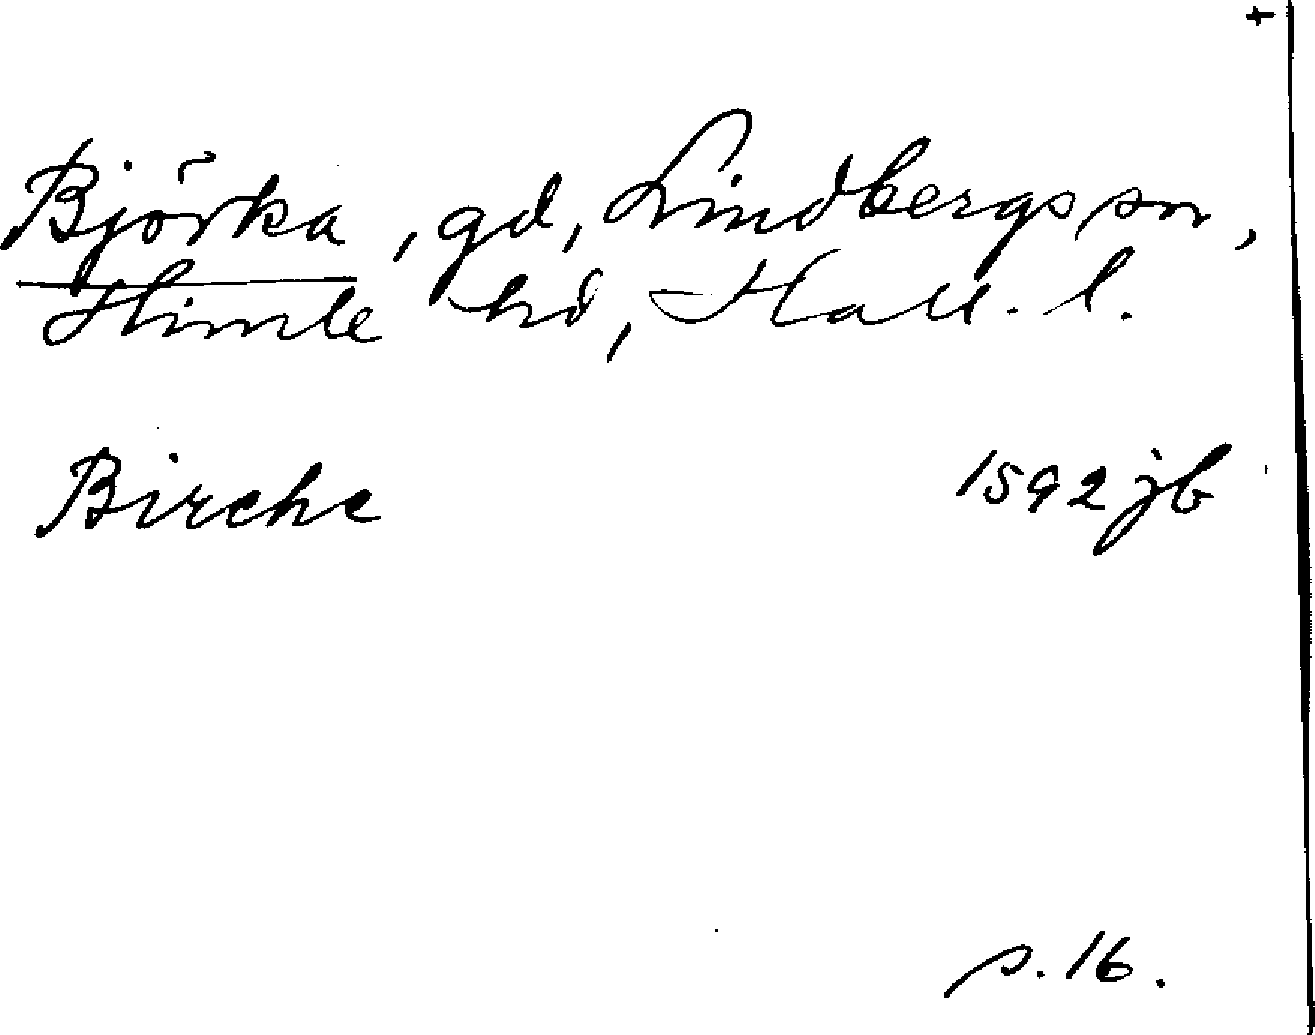 +
Björka, gd, Lindbergs sn,
Himle hd, Hall. l.
Birche 1592 jb
s. 16.